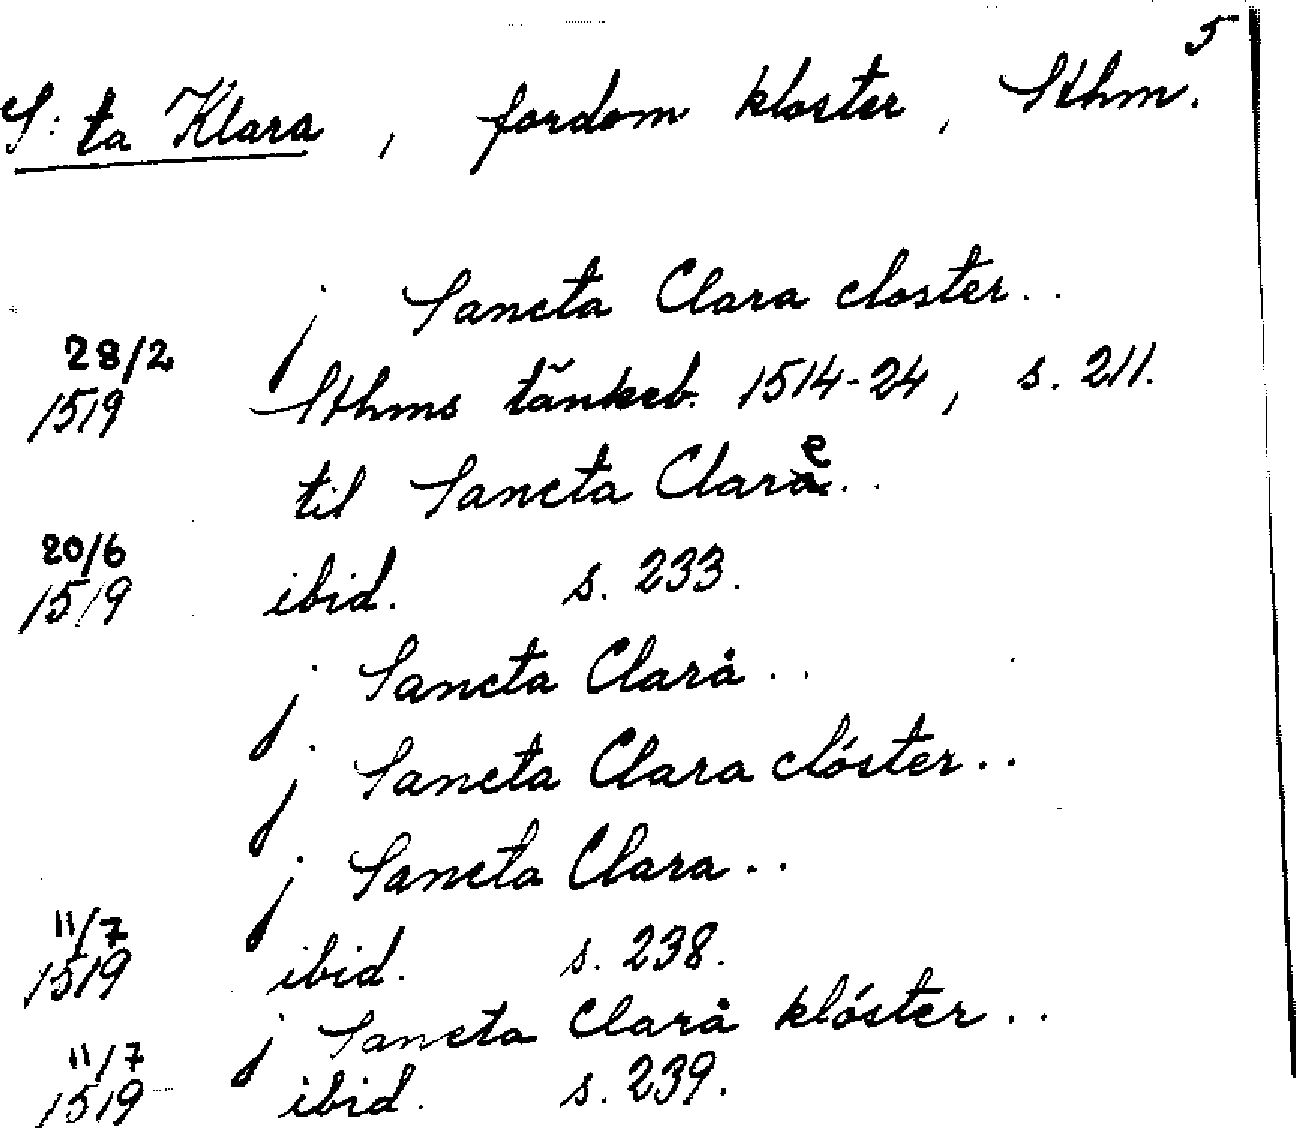 5
S:ta Klara, fordom kloster, Sthm.
j Sancta Clara closter..
28/2
1519 Sthms tänkeb. 1514-24, s. 211.
til Sancta Claraͤ..
20/6
1519 ibid. s. 233.
j Sancta Clarȧ..
j Sancta Clara clóster..
j Sancta Clara..
11/7
1519 ibid. s. 238.
j Sancta Clarȧ klóster..
11/7
1519 ibid. s. 239.